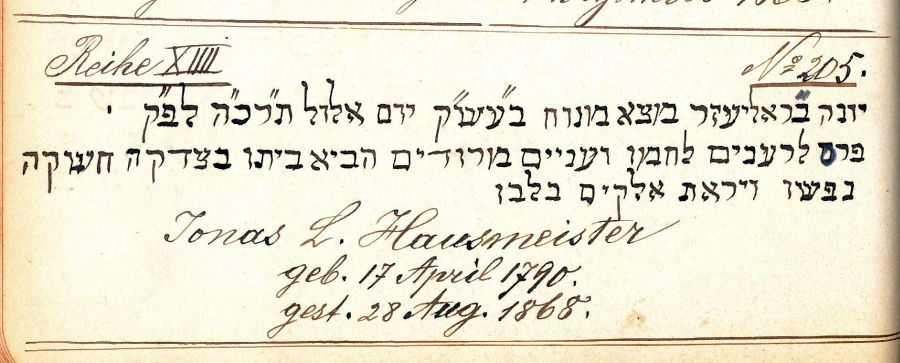 Reihe XIIII № 205.
יונה ב"ר אליעזר מצא מנוח ב"עש"ק יום אלול ת"רכ"ה לפ"ק
פרס לרעבים לחמו ועניים מרודים הביא ביתו בצדקה חשוקה
נפשו ויראת אלקים בלבו
Jonas L. Hausmeister
geb. 17 April 1790.
gest. 28 Aug. 1868.